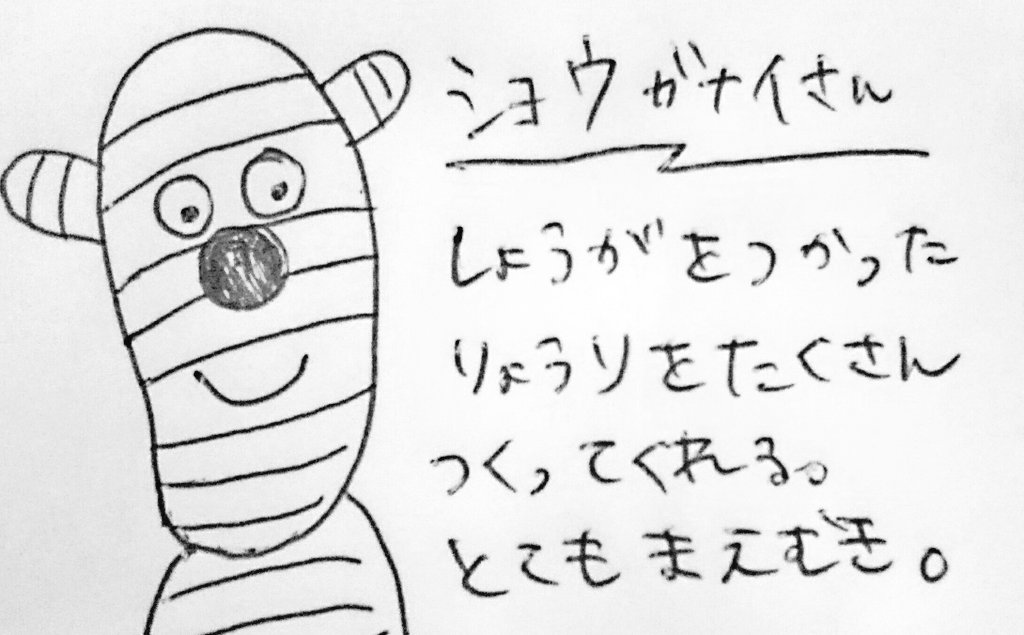 ショウガナイさん
しょうがをつかった
りょうりをたくさん
つくってくれる。
とてもまえむき。